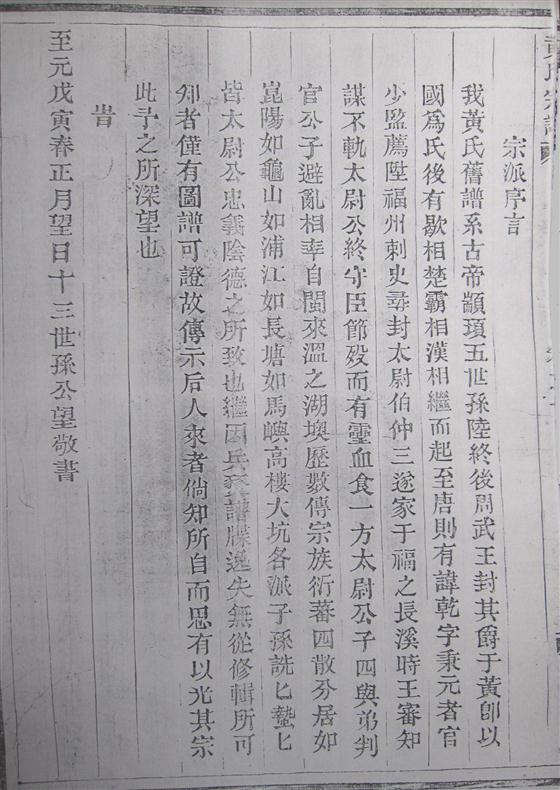 宗派序言
我黃氏舊譜系古帝顓頊五世孫陸終後周武王封其爵于黃卽以
國爲氏後有歇相楚霸相漢相繼而起至唐則有諱乾字秉元者官
少監薦陞福州刺史尋封太尉伯仲三遂家于福之長溪時王審知
謀不軌太尉公終守臣節歿而有靈血食一方太尉公子四與弟判
官公子避亂相率自閩來溫之湖墺歷數傳宗族衍蕃四散分居如
崑陽如龜山如浦江如長塘如馬嶼高樓大坑各派子孫詵匕蟄匕
皆太尉公忠義陰德之所致也繼因兵燹譜牒逸失無從修輯所可
知者僅有圖譜可證故傳示后人來者倘知所自而思有以光其宗
此予之所深望也
旹
至元戊寅春正月望日十三世孫公望敬書